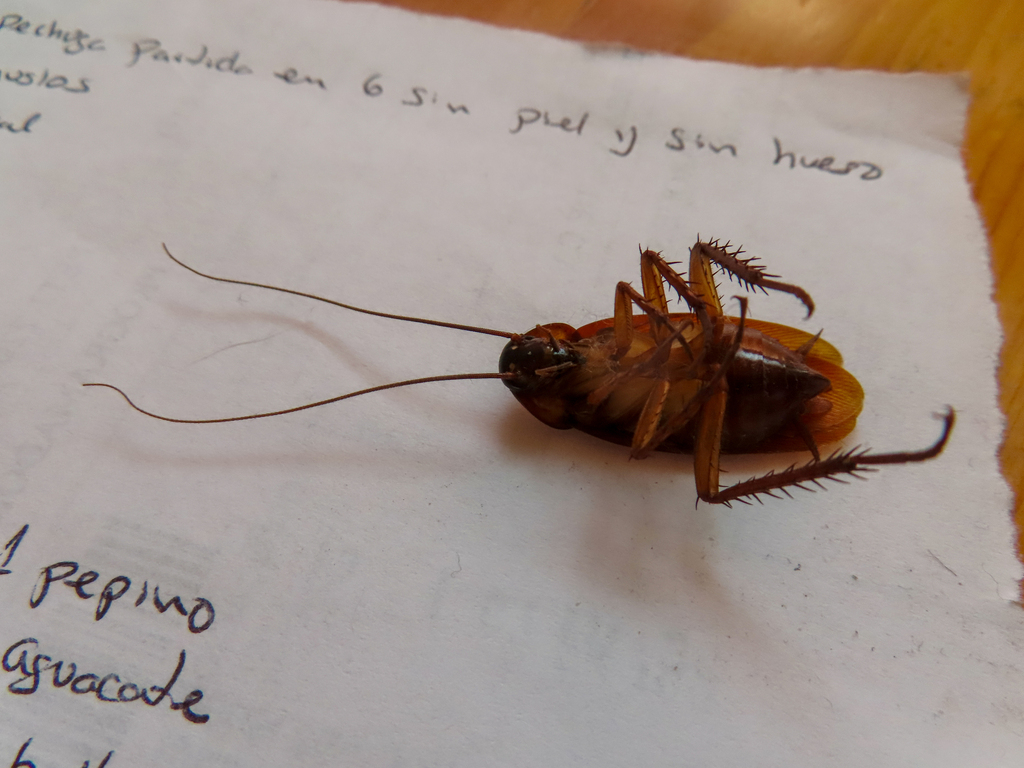 pechuga partida en 6 sin piel y sin hueso
1 pepino
aguacate